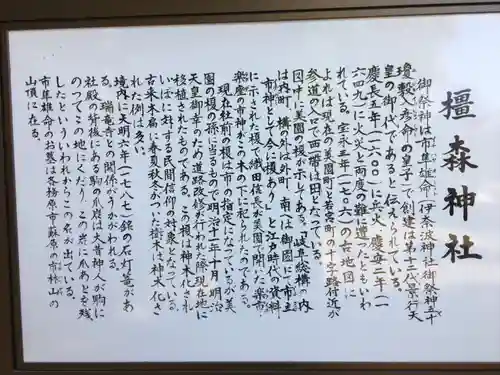 橿森神社
御祭神は市隼雄命(伊奈波神社御祭神五十
瓊敷入彦命の皇子)で創建は第十二代景行天
皇の御代であると伝えられている。
慶長五年(一六〇〇)に兵火、慶安二年(一
六四九)に火災と両度の難に遭ったともいわ
れている。宝永三年(一七〇六)の古地図に
よれば現在の美園町と若宮町の十字路付近が
参道の入口で西側は田となっている。
図中に美園の榎が示してある。「岐阜総構の内
は内町、構の外は外町、南へは御園に「市主
市神として今に榎あり」と江戸時代の資料
に示された榎で織田信長が美園で開いた楽市
楽座の市神がこの木の下に祀られたのである。
現在社前の榎は市の指定になっているが美
園の榎の孫に当るもので明治十一年十月、明治
天皇御幸のため道路改修が行われた際現在地に
移植されたものである。この榎は神木化され
いぼに対する民間信仰の対象となっている。
古来木扁に春夏秋冬がついた樹木は神木化さ
れた例は多い。
境内に天明六年(一七八七)銘の石灯竜があ
る。瑞竜寺との関係がうかがわれる。
社殿の背後にある駒の爪岩は大昔神人が駒に
のってこの地にくだり、この岩に爪あとを残
したといういわれからこの名が出ている。
市隼雄命のお墓は各務原市蘇原の市杵山の
山頂に在る。